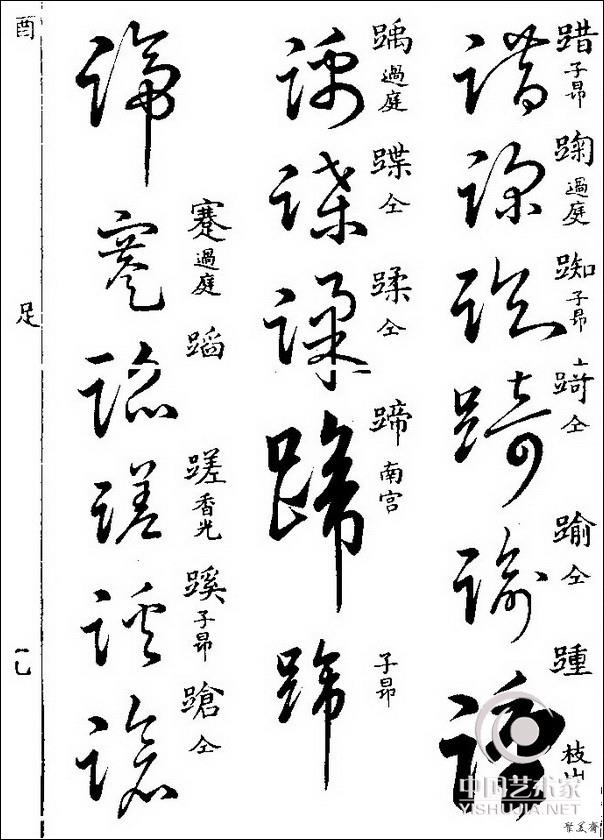 踖 子昂
踘 過庭
踟 子昂
踦 仝
踰 仝
踵 枝山
踽 過庭
蹀 仝
蹂 仝
蹄 南宫
子昂
蹇 過庭
蹈
蹉 香光
蹊 子昂
蹌 仝
酉
足
中国艺术家
YISHUJIA.NET